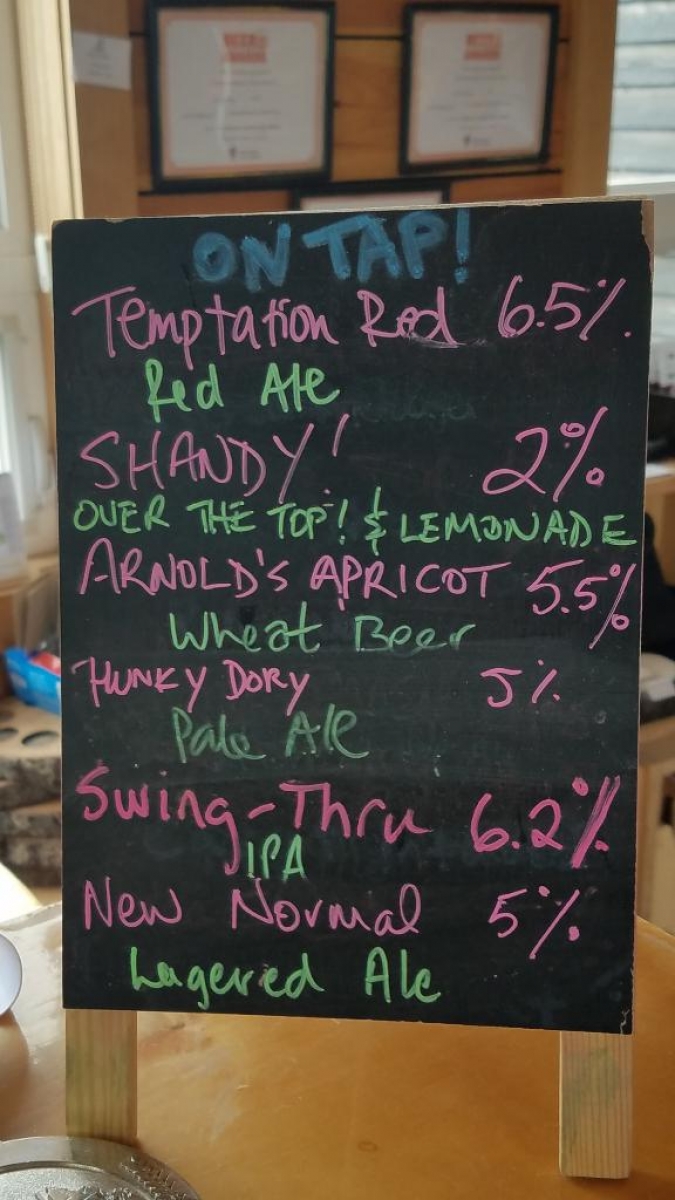 ON TAP!
Temptation Red 6.5%.
Red Ale
SHANDY! 2%
OVER THE TOP! & LEMONADE
ARNOLD'S APRICOT 5.5%
Wheat Beer
HUNKY DORY 5%
Pale Ale
Swing-Thru 6.2%
IPA
New Normal 5%
Lagered Ale